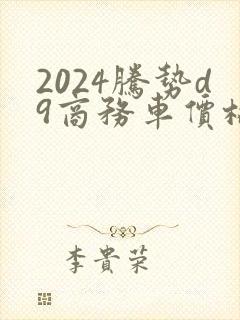 2024騰勢d
9商務車價格
李貴荣